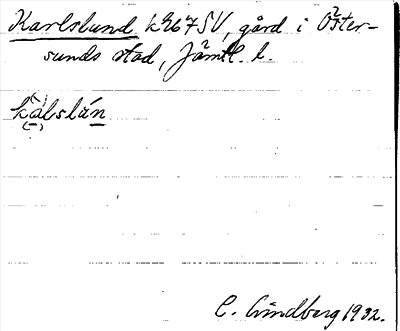 Karlslund k267SV, gård i Öster-
sunds stad, Jämtl. l.
kàlslán
C. Lindberg 1932.